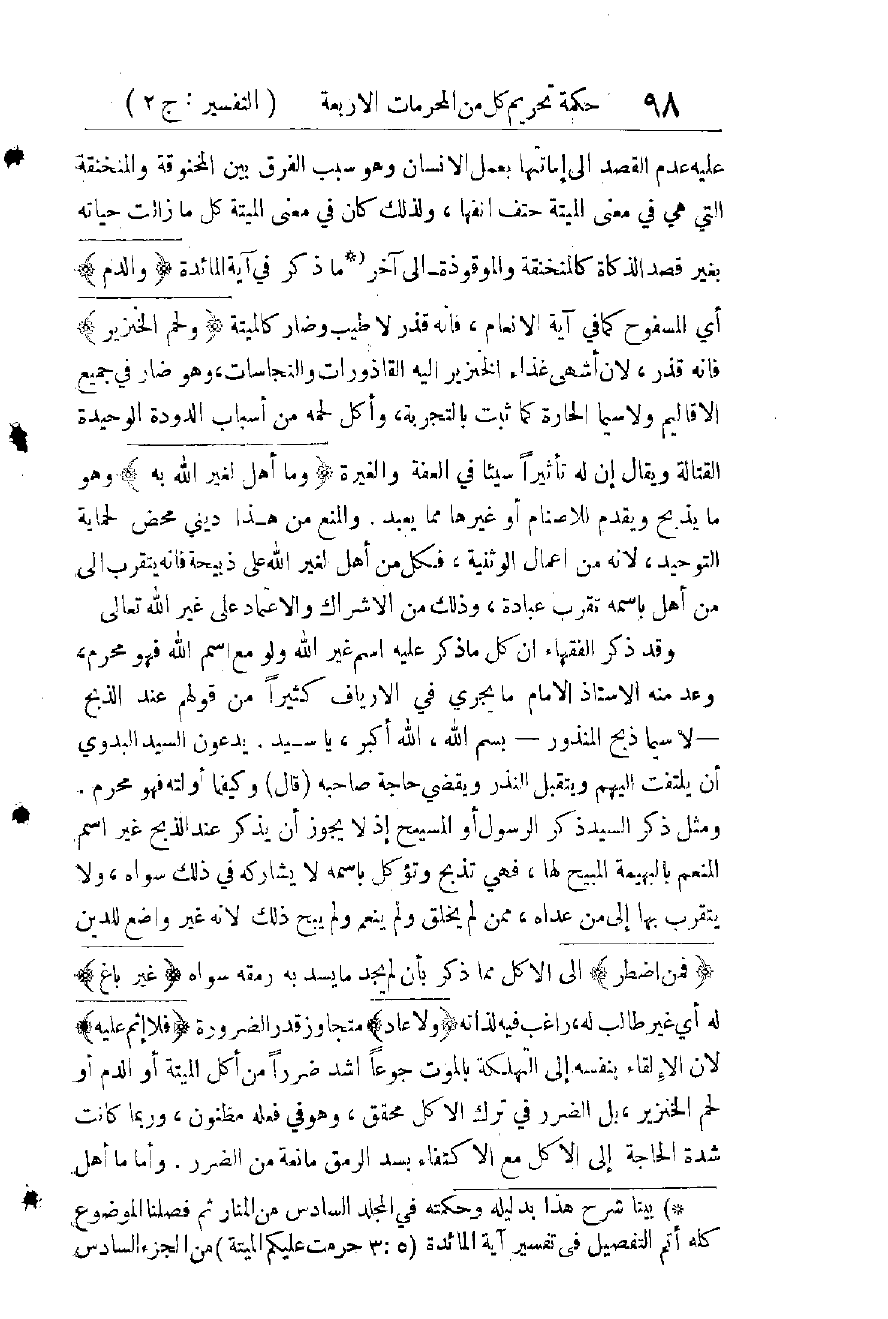 ٩٨ حكمة تحريم كل من المحرمات الاربعة ( التفسير : ج ٢ )
عليه عدم القصد الى إماتتها بعمل الانسان وهو سبب الفرق بين المخنوقة والمنخنقة
التي هي في معنى الميتة حتف انفها ، ولذلك كان في معنى الميتة كل ما زالت حياته
بغير قصد الذكاة كالمنخنقة والموقوذة ـ الى آخر *) ما ذكر في آية المائدة ﴿ والدم ﴾
أي المسفوح كما في آية الانعام ، فانه قذر لا طيب وضار كالميتة ﴿ ولحم الخنزير ﴾
فانه قذر ، لان أشهى غذاء الخنزير اليه القاذورات والنجاسات، وهو ضار في جميع
الاقاليم ولاسيما الحارة كما ثبت بالتجربة، وأكل لحمه من أسباب الدودة الوحيدة
القتالة ويقال إن له تأثيراً سيئا في العفة والغيرة ﴿ وما أهل لغير الله به ﴾ وهو
ما يذبح ويقدم للاصنام أو غيرها مما يعبد . والمنع من هـذا ديني محض لحماية
التوحيد ، لانه من اعمال الوثنية ، فكل من أهل لغير الله على ذبيحة فانه يتقرب الى
من أهل باسمه تقرب عبادة ، وذلك من الاشراك والاعتماد على غير الله تعالى
وقد ذكر الفقهاء ان كل ما ذكر عليه اسم غير الله ولو مع اسم الله فهو محرم،
وعد منه الاستاذ الامام ما يجري في الارياف كثيراً من قولهم عند الذبح
— لا سيما ذبح المنذور — بسم الله ، الله أكبر ، يا سـيد . يدعون السيد البدوي
أن يلتفت اليهم ويتقبل النذر ويقضي حاجة صاحبه (قال) وكيفما أولته فهو محرم .
ومثل ذكر السيد ذكر الرسول أو المسيح إذ لا يجوز أن يذكر عند الذبح غير اسم
المنعم بالبهيمة المبيح لها ، فهي تذبح وتؤكل باسمه لا يشاركه في ذلك سواه ، ولا
يتقرب بها إلى من عداه ، ممن لم يخلق ولم ينعم ولم يبح ذلك لانه غير واضع للدين
﴿ فمن اضطر ﴾ الى الاكل مما ذكر بأن لم يجد ما يسد به رمقه سواه ﴿ غير باغ ﴾
له أي غير طالب له، راغب فيه لذاته ﴿ولا عاد﴾ متجاوز قدر الضرورة ﴿فلا إثم عليه﴾
لان الإلقاء بنفسه إلى التهلكة بالموت جوعاً اشد ضرراً من أكل الميتة أو الدم أو
لحم الخنزير ، بل الضرر في ترك الاكل محقق ، وهو في فعله مظنون ، وربما كانت
شدة الحاجة إلى الاكل مع الاكتفاء بسد الرمق مانعة من الضرر . وأما ما أهل
*) بينا شرح هذا بدليله وحكمته في المجلد السادس من المنار ثم فصلنا الموضوع
كله أتم التفصيل فى تفسير آية المائدة (٥ : ٣ حرمت عليكم الميتة) من الجزء السادس